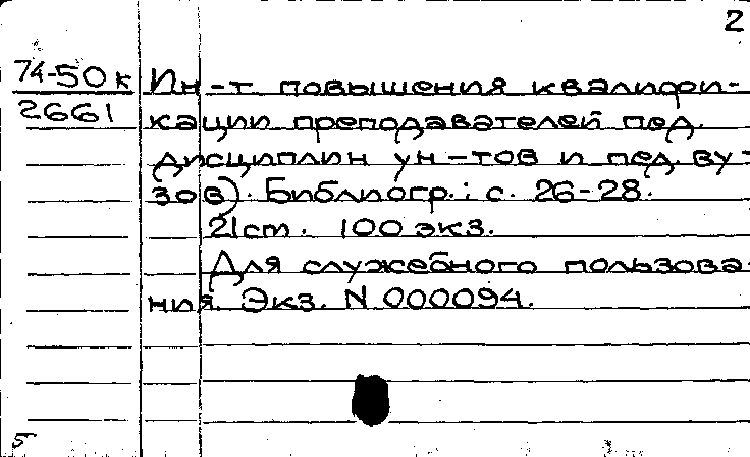 2
74-50к
2661
Ин-т повышения квалифи-
кации преподавателей пед.
дисциплин ун-тов и пед. ву-
зов). Библиогр.: с. 26-28.
21 cm. 100 экз.
Для служебного пользова-
ния. Экз. N 000094.
5